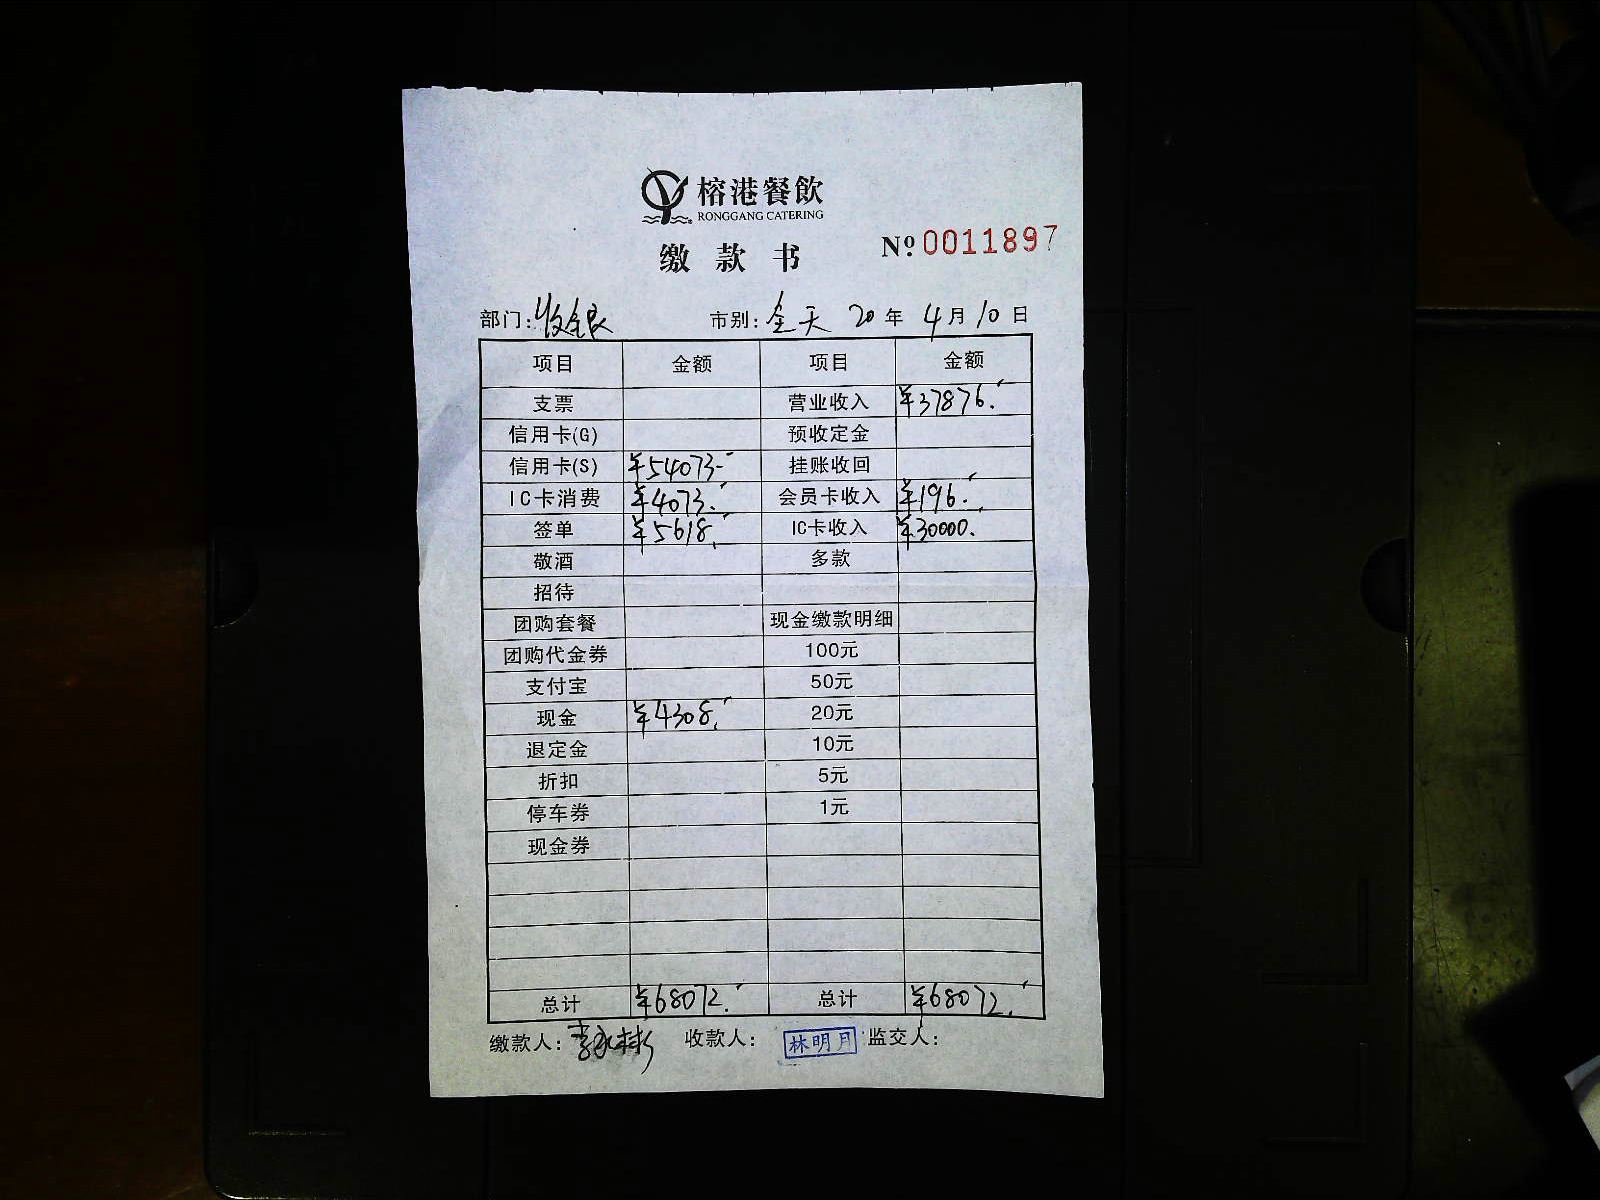 榕港餐飲
RONGGANG CATERING
缴款书
Nº:0011897
部门:收银 市别:全天 20年4月10日
项目 金额 项目 金额
支票 营业收入 ¥37876.-
信用卡(G) 预收定金
信用卡(S) ¥54073.- 挂账收回
IC卡消费 ¥4073.- 会员卡收入 ¥196.-
签单 ¥5618.- IC卡收入 ¥30000.-
敬酒 多款
招待
团购套餐 现金缴款明细
团购代金券 100元
支付宝 50元
现金 ¥4308.- 20元
退定金 10元
折扣 5元
停车券 1元
现金券
总计 ¥68072.- 总计 ¥68072.-
缴款人: 收款人: 林明月 监交人: